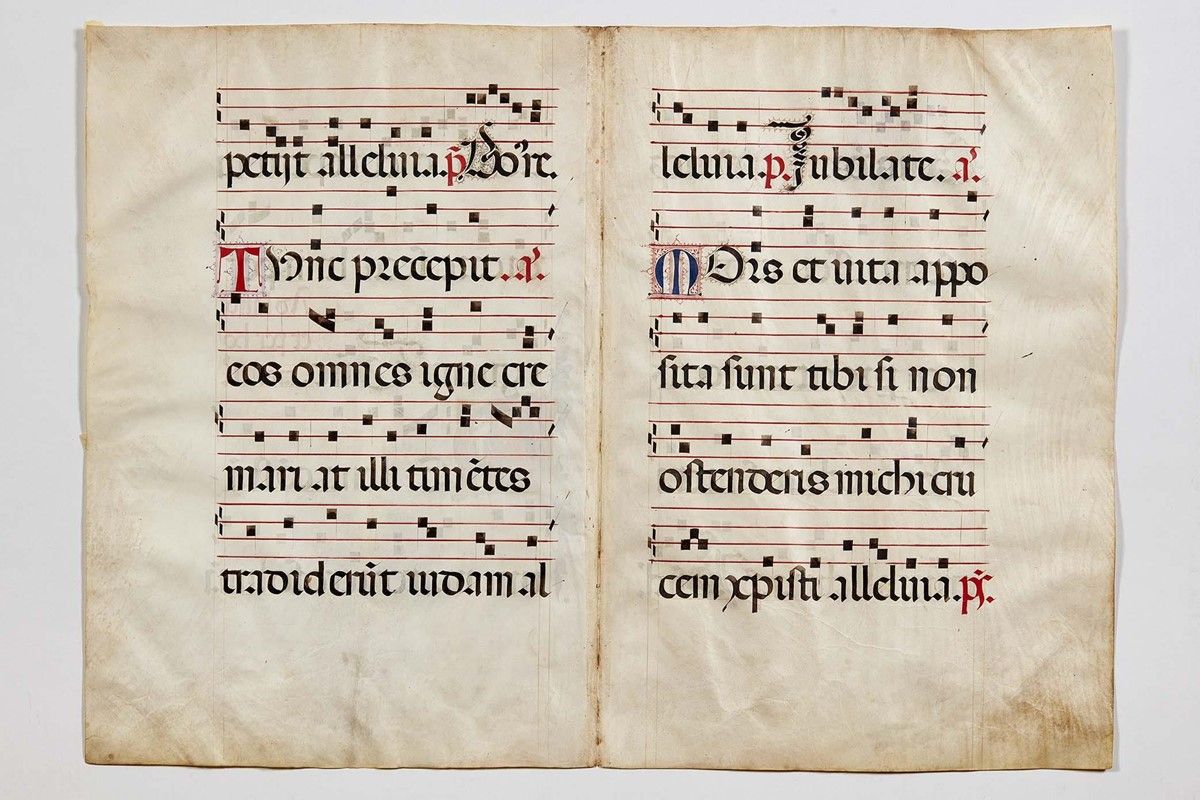 petijt alleluia. p̃ Do᷒ie.
TVnc precepit. a᷒.
eos omnes igne cre
mari at illi timẽtes
tradiderũt iudam al
leluia. p. Jubilate. a᷒.
MOrs et uita appo
sita sunt tibi si non
ostenderis michi cru
cem xpisti alleluia. pš.